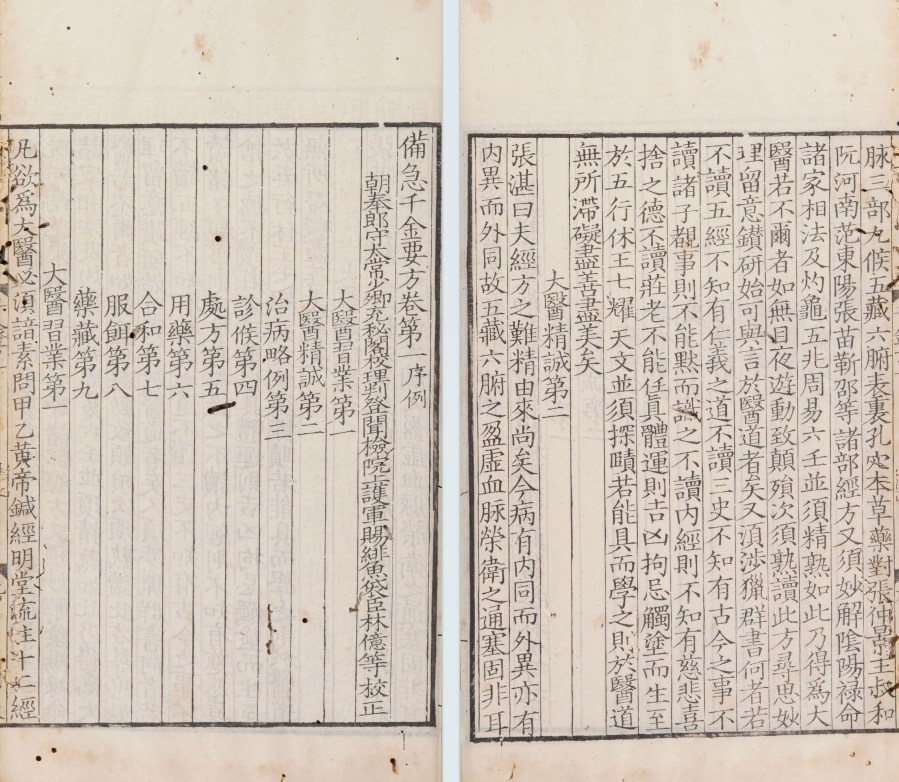 備急千金要方卷第一 序例
朝奉郎守太常少卿充秘閣校理判登聞檢院上護軍賜緋魚袋臣林億等校正
大醫習業第一
大醫精誠第二
治病略例第三
診候第四
處方第五
用藥第六
合和第七
服餌第八
藥藏第九
大醫習業第一
凡欲為大醫必須諳素問甲乙黃帝鍼經明堂流注十二經
脉三部九候五藏六腑表裏孔穴本草藥對張仲景王叔和
阮河南范東陽張苗靳邵等諸部經方又須妙解陰陽祿命
諸家相法及灼龜五兆周易六壬並須精熟如此乃得為大
醫若不爾者如無目夜遊動致顛殞次須熟讀此方尋思妙
理留意鑚研始可與言於醫道者矣又湏涉獵群書何者若
不讀五經不知有仁義之道不讀三史不知有古今之事不
讀諸子覩事則不能默而識之不讀內經則不知有慈悲喜
捨之德不讀莊老不能任真體運則吉凶拘忌觸塗而生至
於五行休王七耀天文並須探賾若能具而學之則於醫道
無所滯礙盡善盡美矣
大醫精誠第二
張湛曰夫經方之難精由來尚矣今病有內同而外異亦有
內異而外同故五藏六腑之盈虛血脉榮衛之通塞固非耳